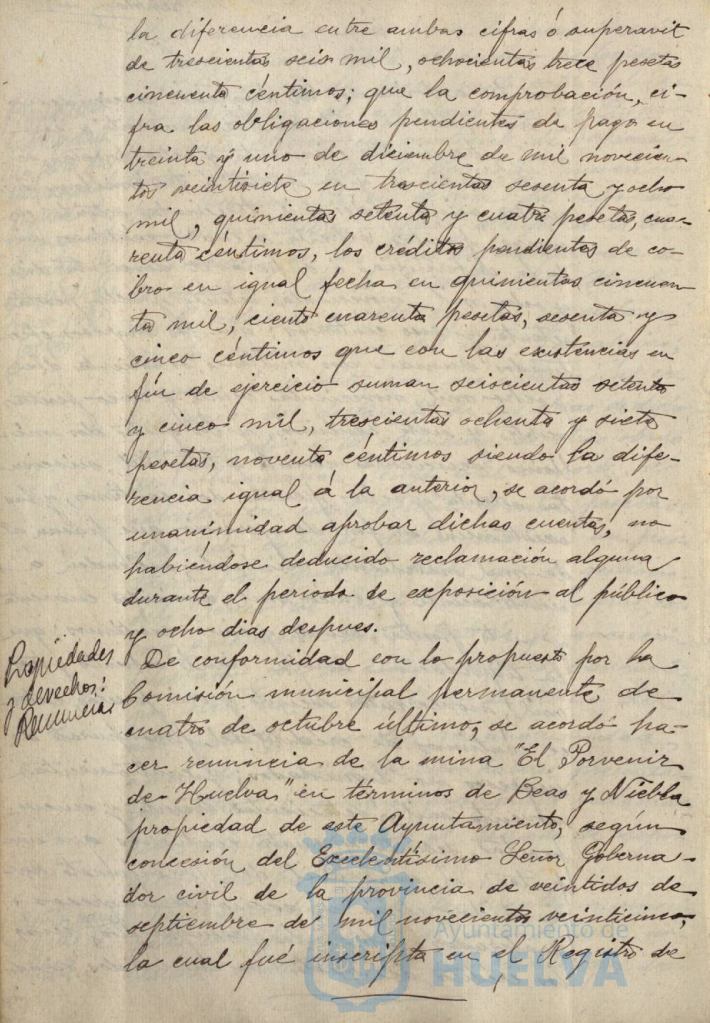 la diferencia entre ambas cifras ó superavit
de trescientas seis mil, ochocientas trece pesetas
cincuenta céntimos; que la comprobación, ci-
fra las obligaciones pendientes de pago en
treinta y uno de diciembre de mil novecien-
tos veintisiete en trescientas sesenta y ocho
mil, quinientas setenta y cuatro pesetas, cua-
renta céntimos, los créditos pendientes de co-
bro en igual fecha en quinientas cincuen-
ta mil, ciento cuarenta pesetas, sesenta y
cinco céntimos que con las existencias en
fin de ejercicio suman seiscientas setenta
y cinco mil, trescientas ochenta y siete
pesetas, noventa céntimos siendo la dife-
rencia igual á la anterior, se acordó por
unanimidad aprobar dichas cuentas, no
habiéndose deducido reclamación alguna
durante el periodo de exposición al público
y ocho dias despues.
Propiedades
y derechos:
Renuncia
De conformidad con lo propuesto por la
Comisión municipal permanente de
cuatro de octubre último, se acordó ha-
cer renuncia de la mina "El Porvenir
de Huelva" en términos de Beas y Niebla
propiedad de este Ayuntamiento, según
concesión del Excelentísimo Señor Goberna-
dor civil de la provincia de veintidos de
septiembre de mil novecientos veinticinco,
la cual fué inscripta en el Registro de
Ayuntamiento de
HUELVA